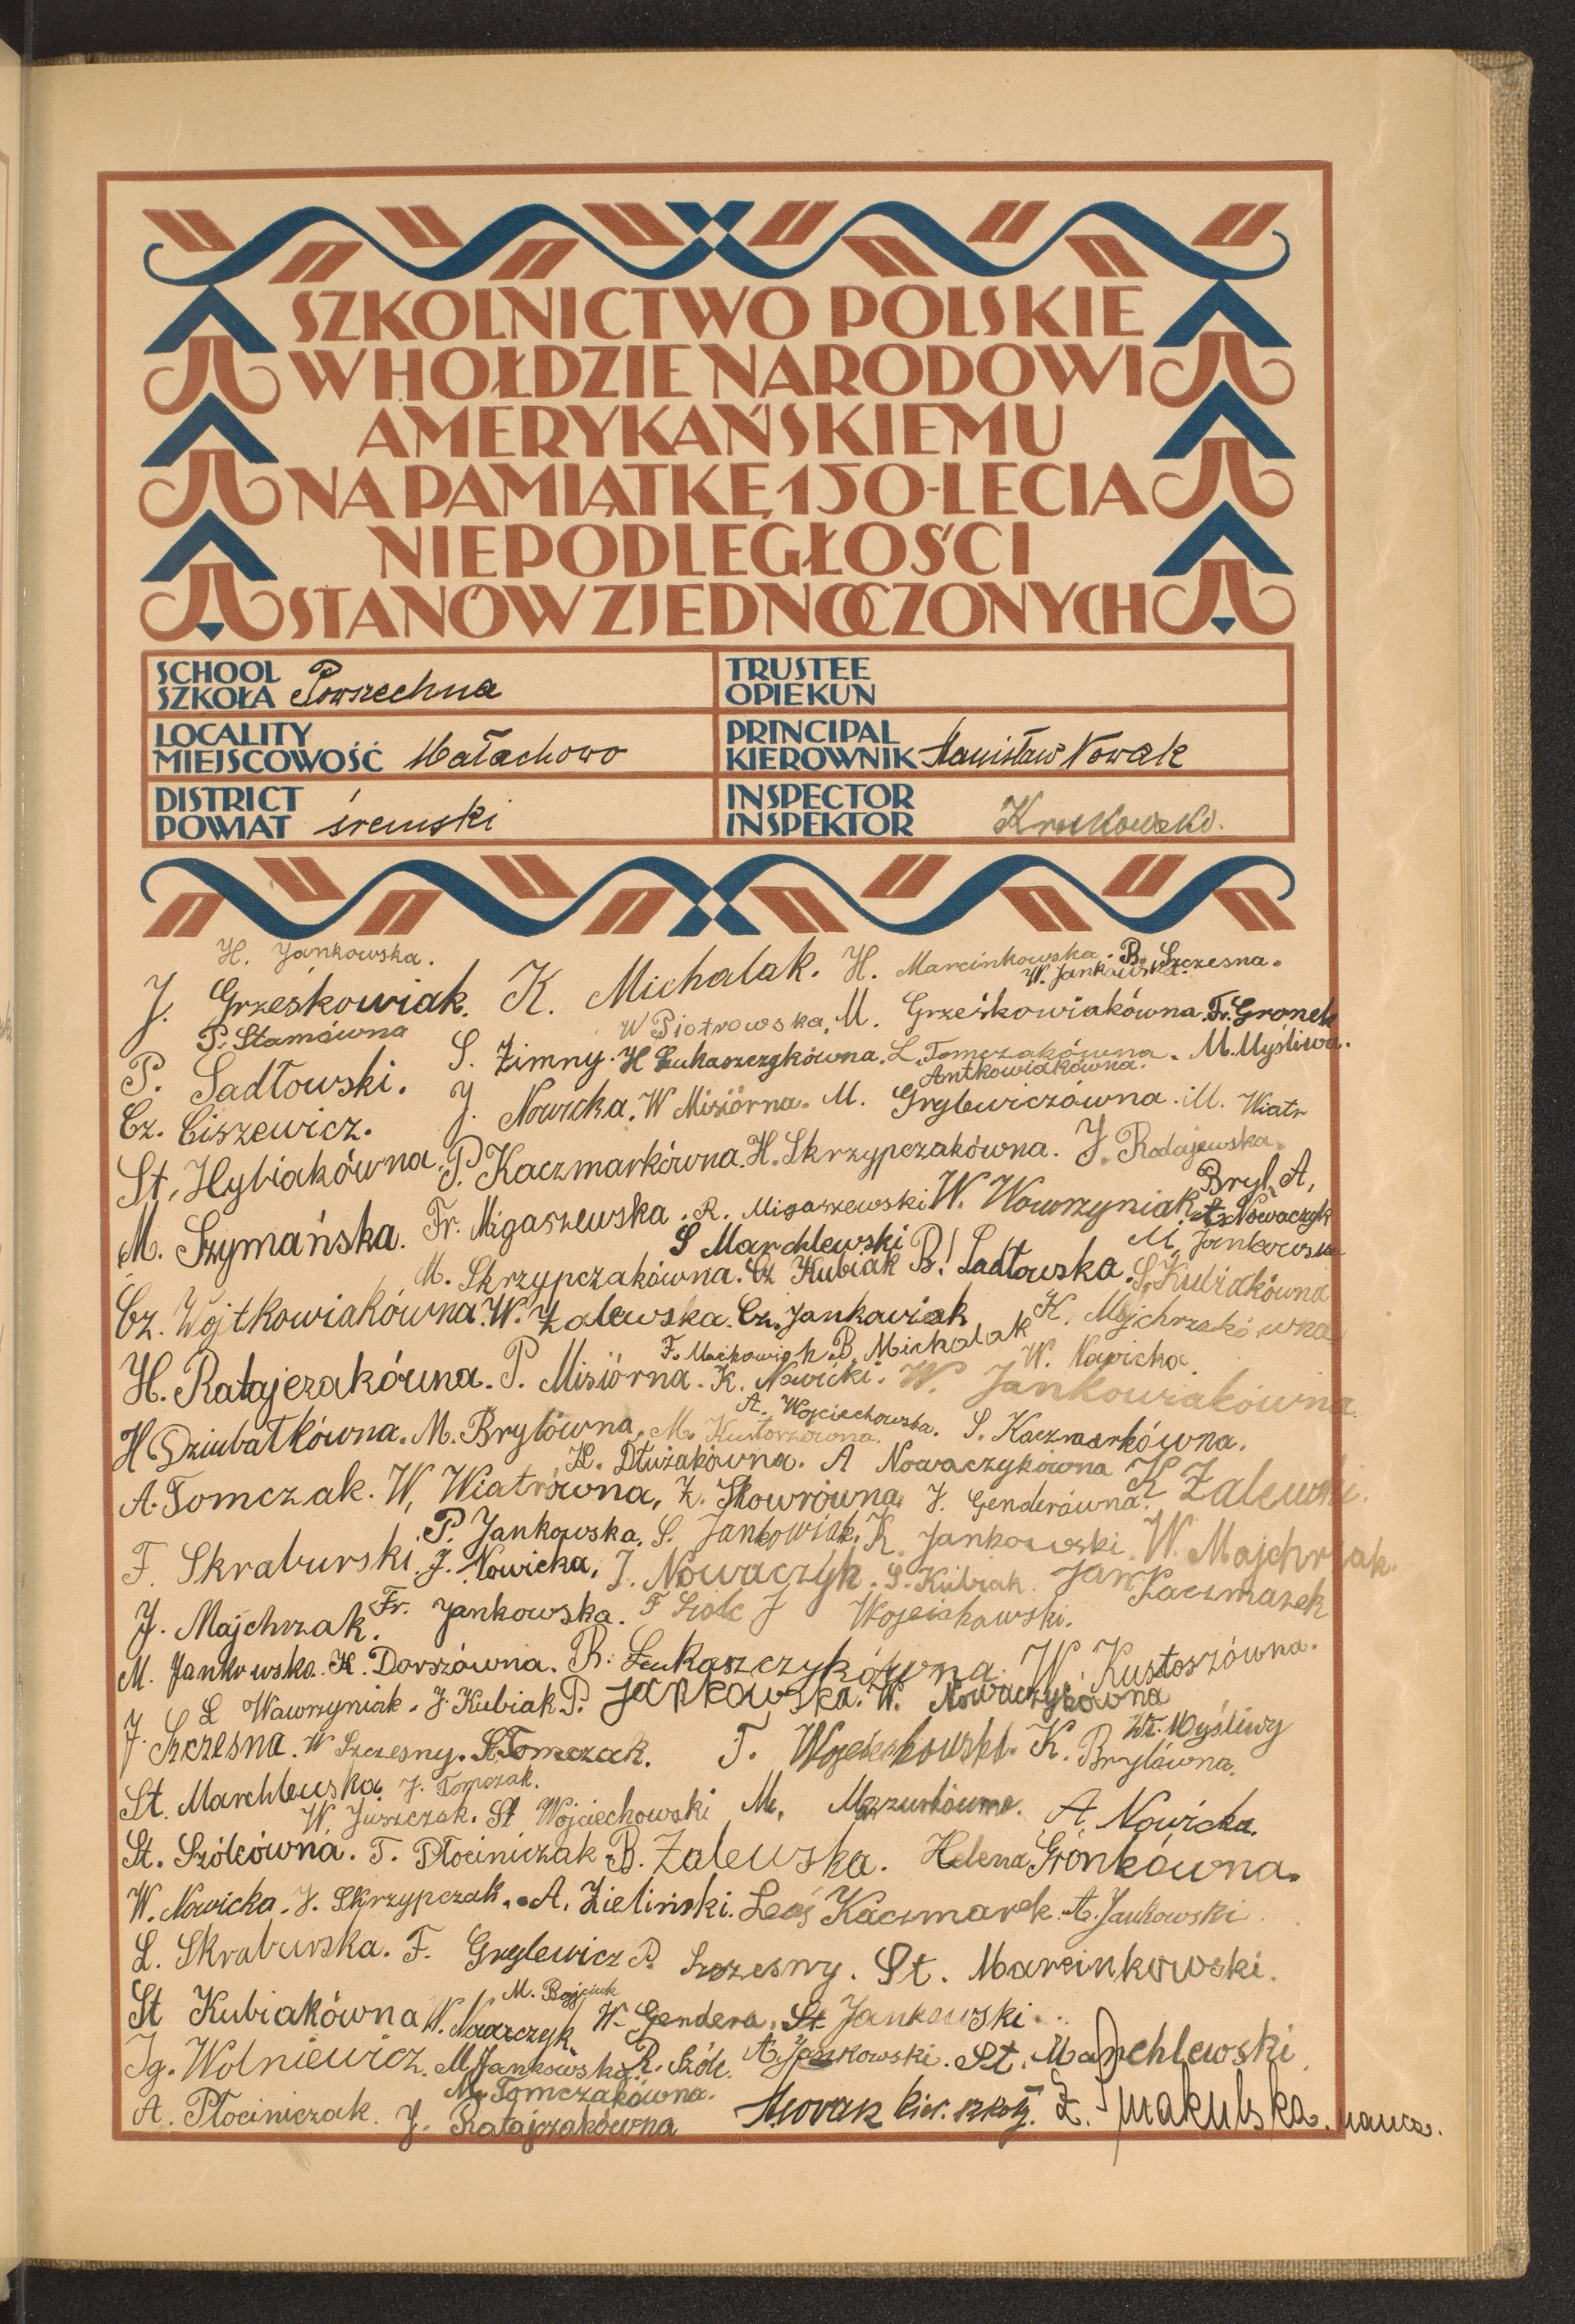 SZKOLNICTWO POLSKIE
W HOŁDZIE NARODOWI
AMERYKAŃSKIEMU
NA PAMIĄTKĘ 150-LECIA
NIEPODLEGŁOŚCI
STANÓW ZJEDNOCZONYCH
SCHOOL
SZKOŁA Powszechna
TRUSTEE
OPIEKUN
LOCALITY
MIEJSCOWOŚĆ Małachowo
PRINCIPAL
KIEROWNIK Stanisław Nowak
DISTRICT
POWIAT śremski
INSPECTOR
INSPEKTOR
H. Jankowska.
J. Grześkowiak. K. Michalak. H. Marcinkowska. B. Szczesna.
W. Jankowska.
P. Stamówna W Piotrowska, M. Grześkowiakówna. Fr. Gronek
P. Sadłowski. S. Zimny. H Łukaszczykówna. L. Tomczakówna. M. Myśliwa.
Antkowiakówna.
Cz. Ciszewicz. J. Nowicka. W Misiórna. M. Grylewiczówna. M. Wiatr
St. Hybiakówna. P. Kaczmarkówna. H. Skrzypczakówna. J. Rodajewska.
Bryl A,
M. Szymańska. Fr. Migaszewska. R. Migaszewski W. Wawrzyniak St. Nowaczyk
S Marchlewski M. Jankowska
M. Skrzypczakówna. Cz Kubiak B. Sadłowska. S. Kubiakówna
Cz. Wojtkowiakówna. W. Zalewska. Cz. Jankowiak K. Majchrzakówna
F. Maćkowiak B. Michalak W. Nowicka.
H. Ratajczakówna. P. Misiórna. K. Nowicki. W. Jankowiakówna.
A. Wojciechowska.
H Dziubałkówna. M. Brylówna, M. Kustoszówna. S. Kaczmarkówna.
H. Dłużakówna. A Nowaczykówna
A. Tomczak. W, Wiatrówna, Z. Skowrówna, J. Genderówna. K Zalewski.
P. Jankowska, S. Jankowiak. K. Jankowski. W. Majchrzak.
F. Skraburski. J. Nowicka, J. Nowaczyk. S. Kubiak. Jan Kaczmarek
J. Majchrzak. Fr. Jankowska. F Szolc J Wojciechowski.
M. Jankowska. K. Dorszówna. B. Łukaszczykówna. W. Kustoszówna.
L Wawrzyniak. J. Kubiak. P. Jankowska. W. Nowaczykówna
J. Szczesna. W Szczesny. S. Tomczak. T. Wojciechowski. K. Brylówna.
Wł. Myśliwy
St. Marchlewska J. Tomczak.
W Juszczak. St Wojciechowski M. Mazurkówna. A. Nowicka.
St. Szólcówna. T. Płociniczak B. Zalewska. Helena Grónkówna.
W. Nowicka. J. Skrzypczak. A. Zieliński. Leoś Kaczmarek. A. Jankowski.
L. Skraburska. F. Grylewicz P. Szczesny. St. Marcinkowski.
St Kubiakówna W. Nowaczyk. W. Gendera. St Jankowski.
Ig. Wolniewicz. M Jankowska. R. Szólc. A. Jankowski. St. Marchlewski.
M. Tomczakówna.
A. Płociniczak. J. Ratajczakówna SNowak kier. szkoły. naucz.